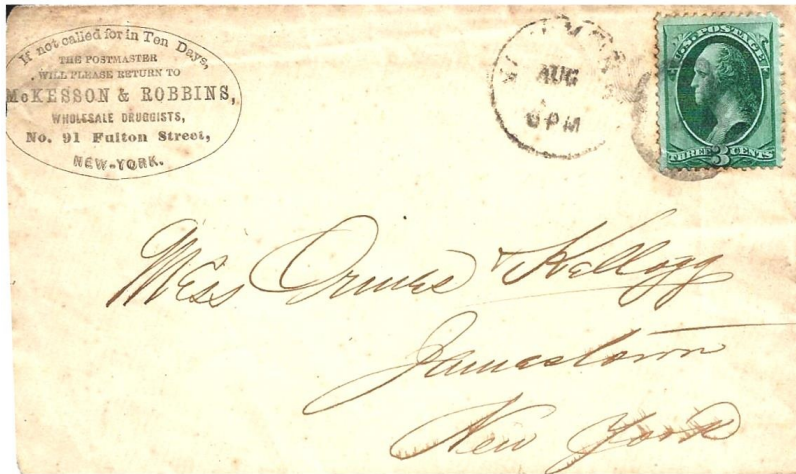 If not called for in Ten Days,
THE POSTMASTER
WILL PLEASE RETURN TO
McKESSON & ROBBINS,
WHOLESALE DRUGGISTS,
No. 91 Fulton Street,
NEW-YORK.
AUG
6 PM
U.S. POSTAGE
THREE 3 CENTS
Mess & Kellogg
Jamestown
New York